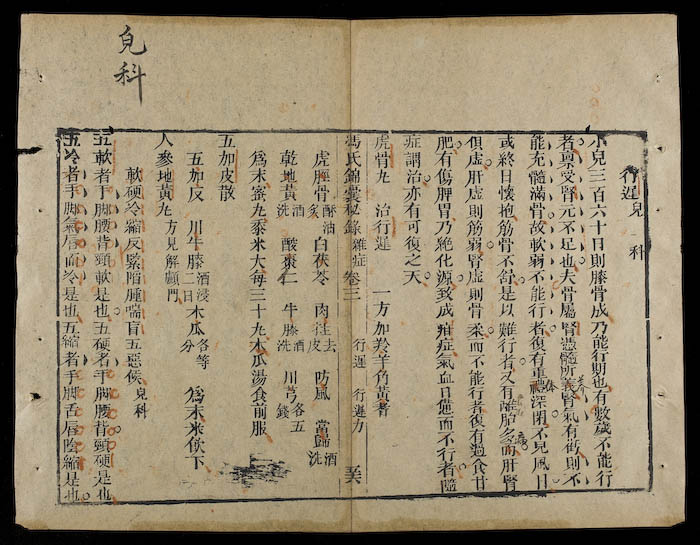 兒科
行遲 兒科
小兒三百六十日則膝骨成乃能行期也有數歲不能行
者稟受腎元不足也夫骨屬腎憑髓所養腎氣有虧則不
能充髓滿骨故軟弱不能行者復有重深閉不見風日
或終日懷抱筋骨不舒是以難行者又有離胎多病而肝腎
俱虛肝虛則筋弱腎虛則骨柔而不能行者復有過食甘
肥有傷脾胃乃絶化源致成疳症氣血日憊而不行者隨
症調治亦有可復之天
虎骨丸 治行遲 一方加羚羊角黃耆
馮氏錦囊秘錄 雜症 卷三 行遲 行遲方
虎脛骨酥油炙 白茯苓 肉桂去皮 防風 當歸酒洗
乾地黃酒洗 酸棗仁 牛膝酒洗 川芎各五錢
爲末蜜丸黍米大每三十丸木瓜湯食前服
五加皮散
五加皮 川牛膝酒浸二日 木瓜各等分 爲末米飲下
人參地黃丸 方見解顱門
軟硬冷縮反緊瘖腫喘盲五惡候 兒科
五軟者手脚腰背頸軟是也五硬者手脚腰背頸硬是也
五冷者手脚氣唇面冷是也五縮者手脚舌唇陰縮是也